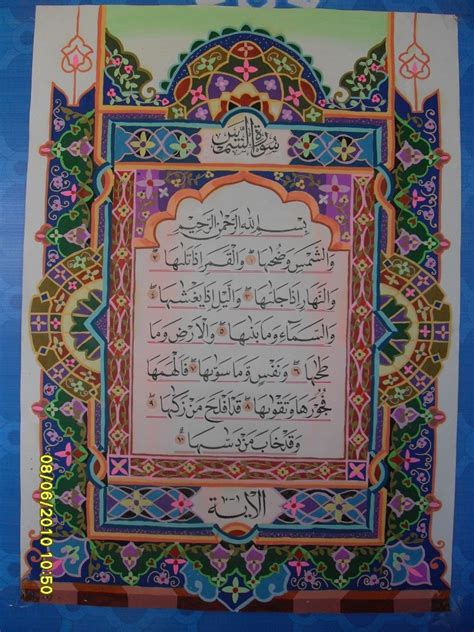 سورة الشمس
بسم الله الرحمن الرحيم
والشمس وضحها ١ والقمر اذا تلها ٢
والنهار اذا جلها ٣ واليل اذا يغشها ٤
والسماء وما بنها ٥ والارض وما
طحها ٦ ونفس وما سوىها ٧ فالهمها
فجورها وتقوىها ٨ قد افلح من زكىها ٩
وقد خاب من دسىها ١٠
الاية ١-١٠
08/06/2010 10:50